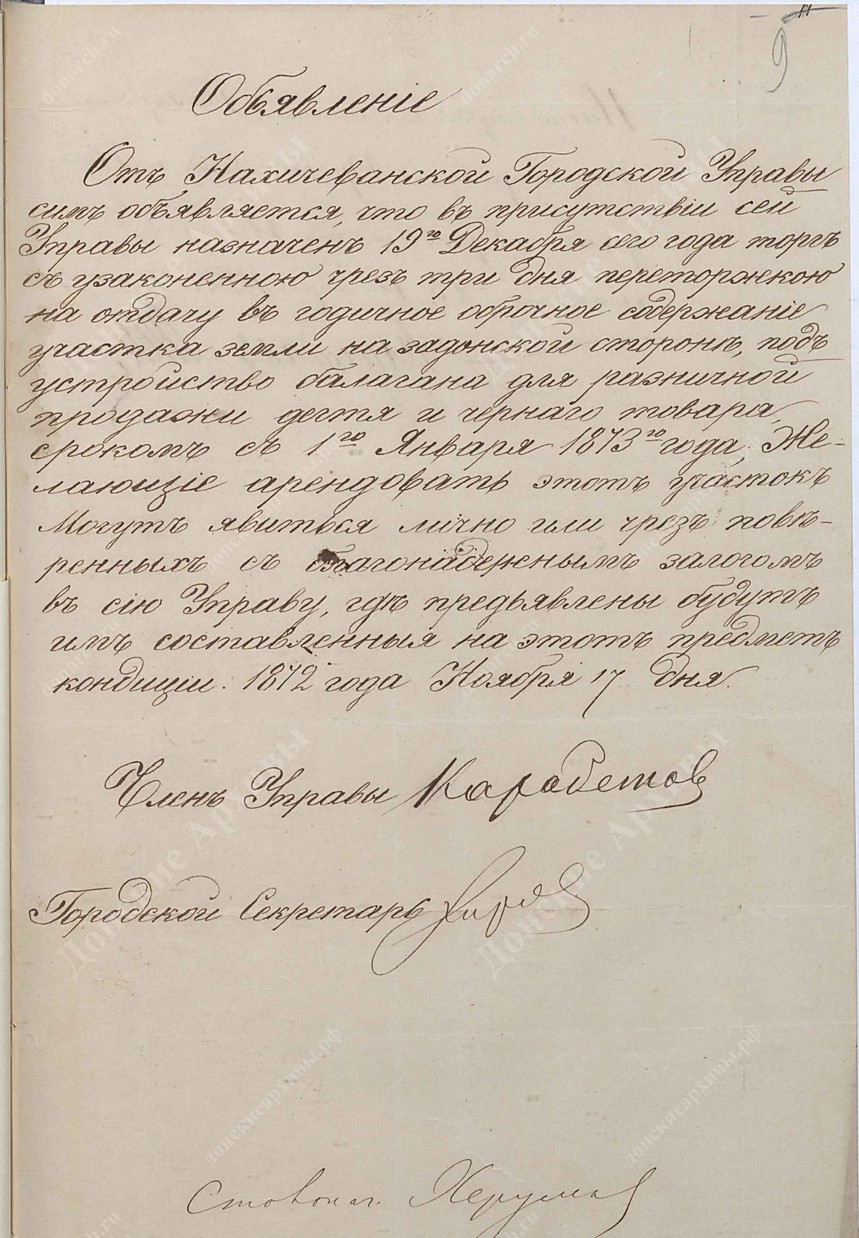 9
Объявленіе
Отъ Нахичеванской Городской Управы
симъ объявляется, что въ присутствіи сей
Управы назначенъ 19го Декабря сего года торгъ
съ узаконенною чрезъ три дня переторжкою
на отдачу въ годичное оброчное содержаніе
участка земли на задонской сторонѣ, подъ
устройство балагана для разничной
продажи дегтя и чернаго товара,
срокомъ съ 1го Января 1873го года, Же-
лающіе арендовать этотъ участокъ
могутъ явиться лично или чрезъ повѣ-
ренныхъ съ благонадежнымъ залогомъ
въ сію Управу, гдѣ предъявлены будутъ
имъ составленныя на этотъ предметъ
кондиціи. 1872 года Ноября 17 дня.
Членъ Управы Карабетов
Городской Секретарь